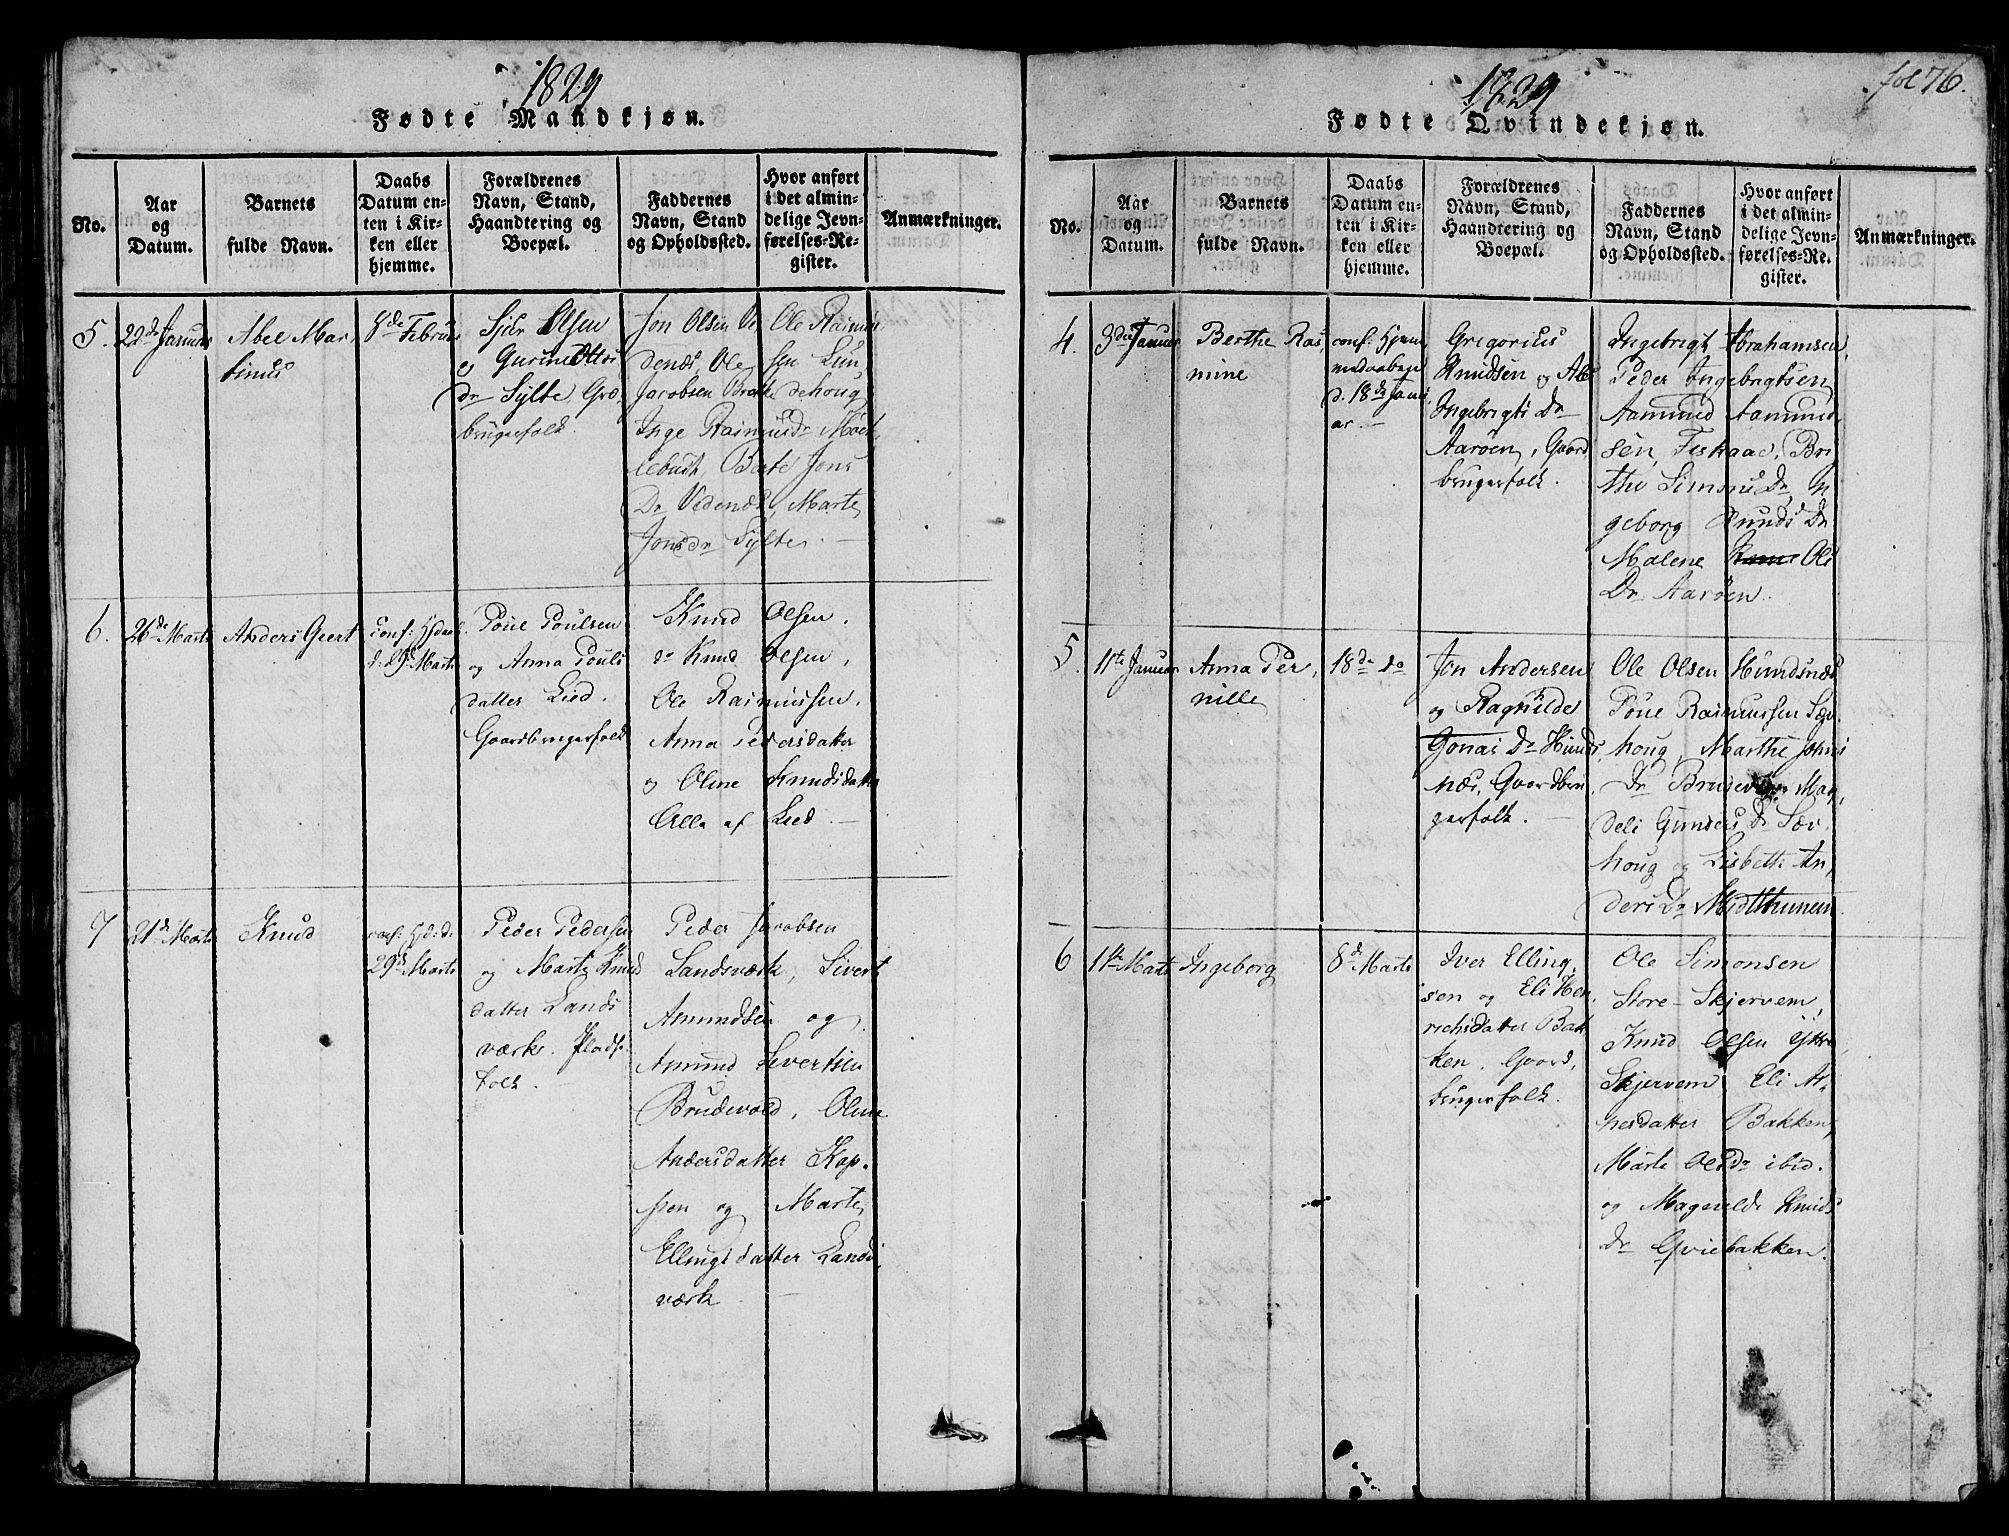 1829
Fødte Mandkjøn.
No.
Aar
og
Datum.
Barnets
fulde Navn.
Daabs
Datum en-
ten i Kir-
ken eller
hjemme.
Forældrenes
Navn, Stand,
Haandtering og
Boepæl.
Faddernes
Navn, Stand
og Opholdssted.
Hvor anført
i det almin-
delige Jevn-
førelses-Re-
gister.
Anmærkninger.
5.
22de Januar
Abel Mar,
tinus
8de Februar
Sjur Olsen
og Gurine Ols
Dr Sylte, Grd,
brugerfolk.
Jon Olsen Ve
denæs, Ole
Jacobsen
Ole Rasmu
sen Lun,
dehoug
Inge Rasmusdr Møl
lebust, Berte Jons
Dr Vedenæs, Marte
Jonsdr Sylte. —
6.
26de Marts
Anders Geert
conf: Hjdaab.
d. 29 Marts
Poul Poulsen
og Anna Pouls
datter Lied.
Gaardbrugerfolk
Knud Olsen.
do Knud Olsen,
Ole Rasmussen.
Anna Pedersdatter
og Oline Knudsdatter
Alle af Lied. —
7
21d Marts
Knud
conf: Hjd: d.
29d Marts
Peder Pedersen
og Marte Knud
datter Lands
værk. Plads-
folk.
Peder Jacobsen
Landsværk, Sivert
Amundsen og
Amund Sivertsen
Brudevold, Oline
Andersdatter Kop-
pen og Marte
Ellingsdatter Lands,
værk —
fol 76.
1829
Fødte Qvindekjøn.
No.
Aar
og
Datum.
Barnets
fulde Navn.
Daabs
Datum en-
ten i Kir-
ken eller
hjemme.
Forældrenes
Navn, Stand,
Haandtering og
Boepæl.
Faddernes
Navn, Stand
og Opholdssted.
Hvor anført
i det almin-
delige Jevn-
førelses-Re-
gister.
Anmærkninger.
4.
3die Januar
Berthe Ras,
mine
conf: Hjem
medaaben
d. 18de Janu,
ar. —
Gregorius
Knudsen og
Ingebrigts Dr
Aarøen, Gaard
brugerfolk.
Ingebrigt Abrahamsen,
Peder Ingebrigtsen,
Aamund Aamund
sen, Fiskaae, Bri
the Simons Dr, In
geborg Knuds Dr
Malene Ols
Dr Aarøen.
5.
11te Januar
Anna Per,
nille
18de do
Jon Andersen
og Ragnilde
Jonas Dr Hunds,
næs, Gaardbru
gerfolk. —
Ole Olsen Hundsnæs
Poul Rasmussen Sæv
houg, Marthe Johns
Dr Bruse Mag,
deli Gunders Dr Sæv
houg og Lisbeth An,
ders Dr Midtthunem
6
1te Marts
Ingeborg
8d Marts
Iver Elling,
sen og Eli Hen,
richsdatter Bak
ken. Gaard,
brugerfolk.
Ole Simonsen
Store-Skjervem,
Knud Olsen Yttre,
Skjervem, Eli Ar
nesdatter Bakken,
Marte Olsdr ibid.
og Magnilde Knuds
Dr Qviebakken.